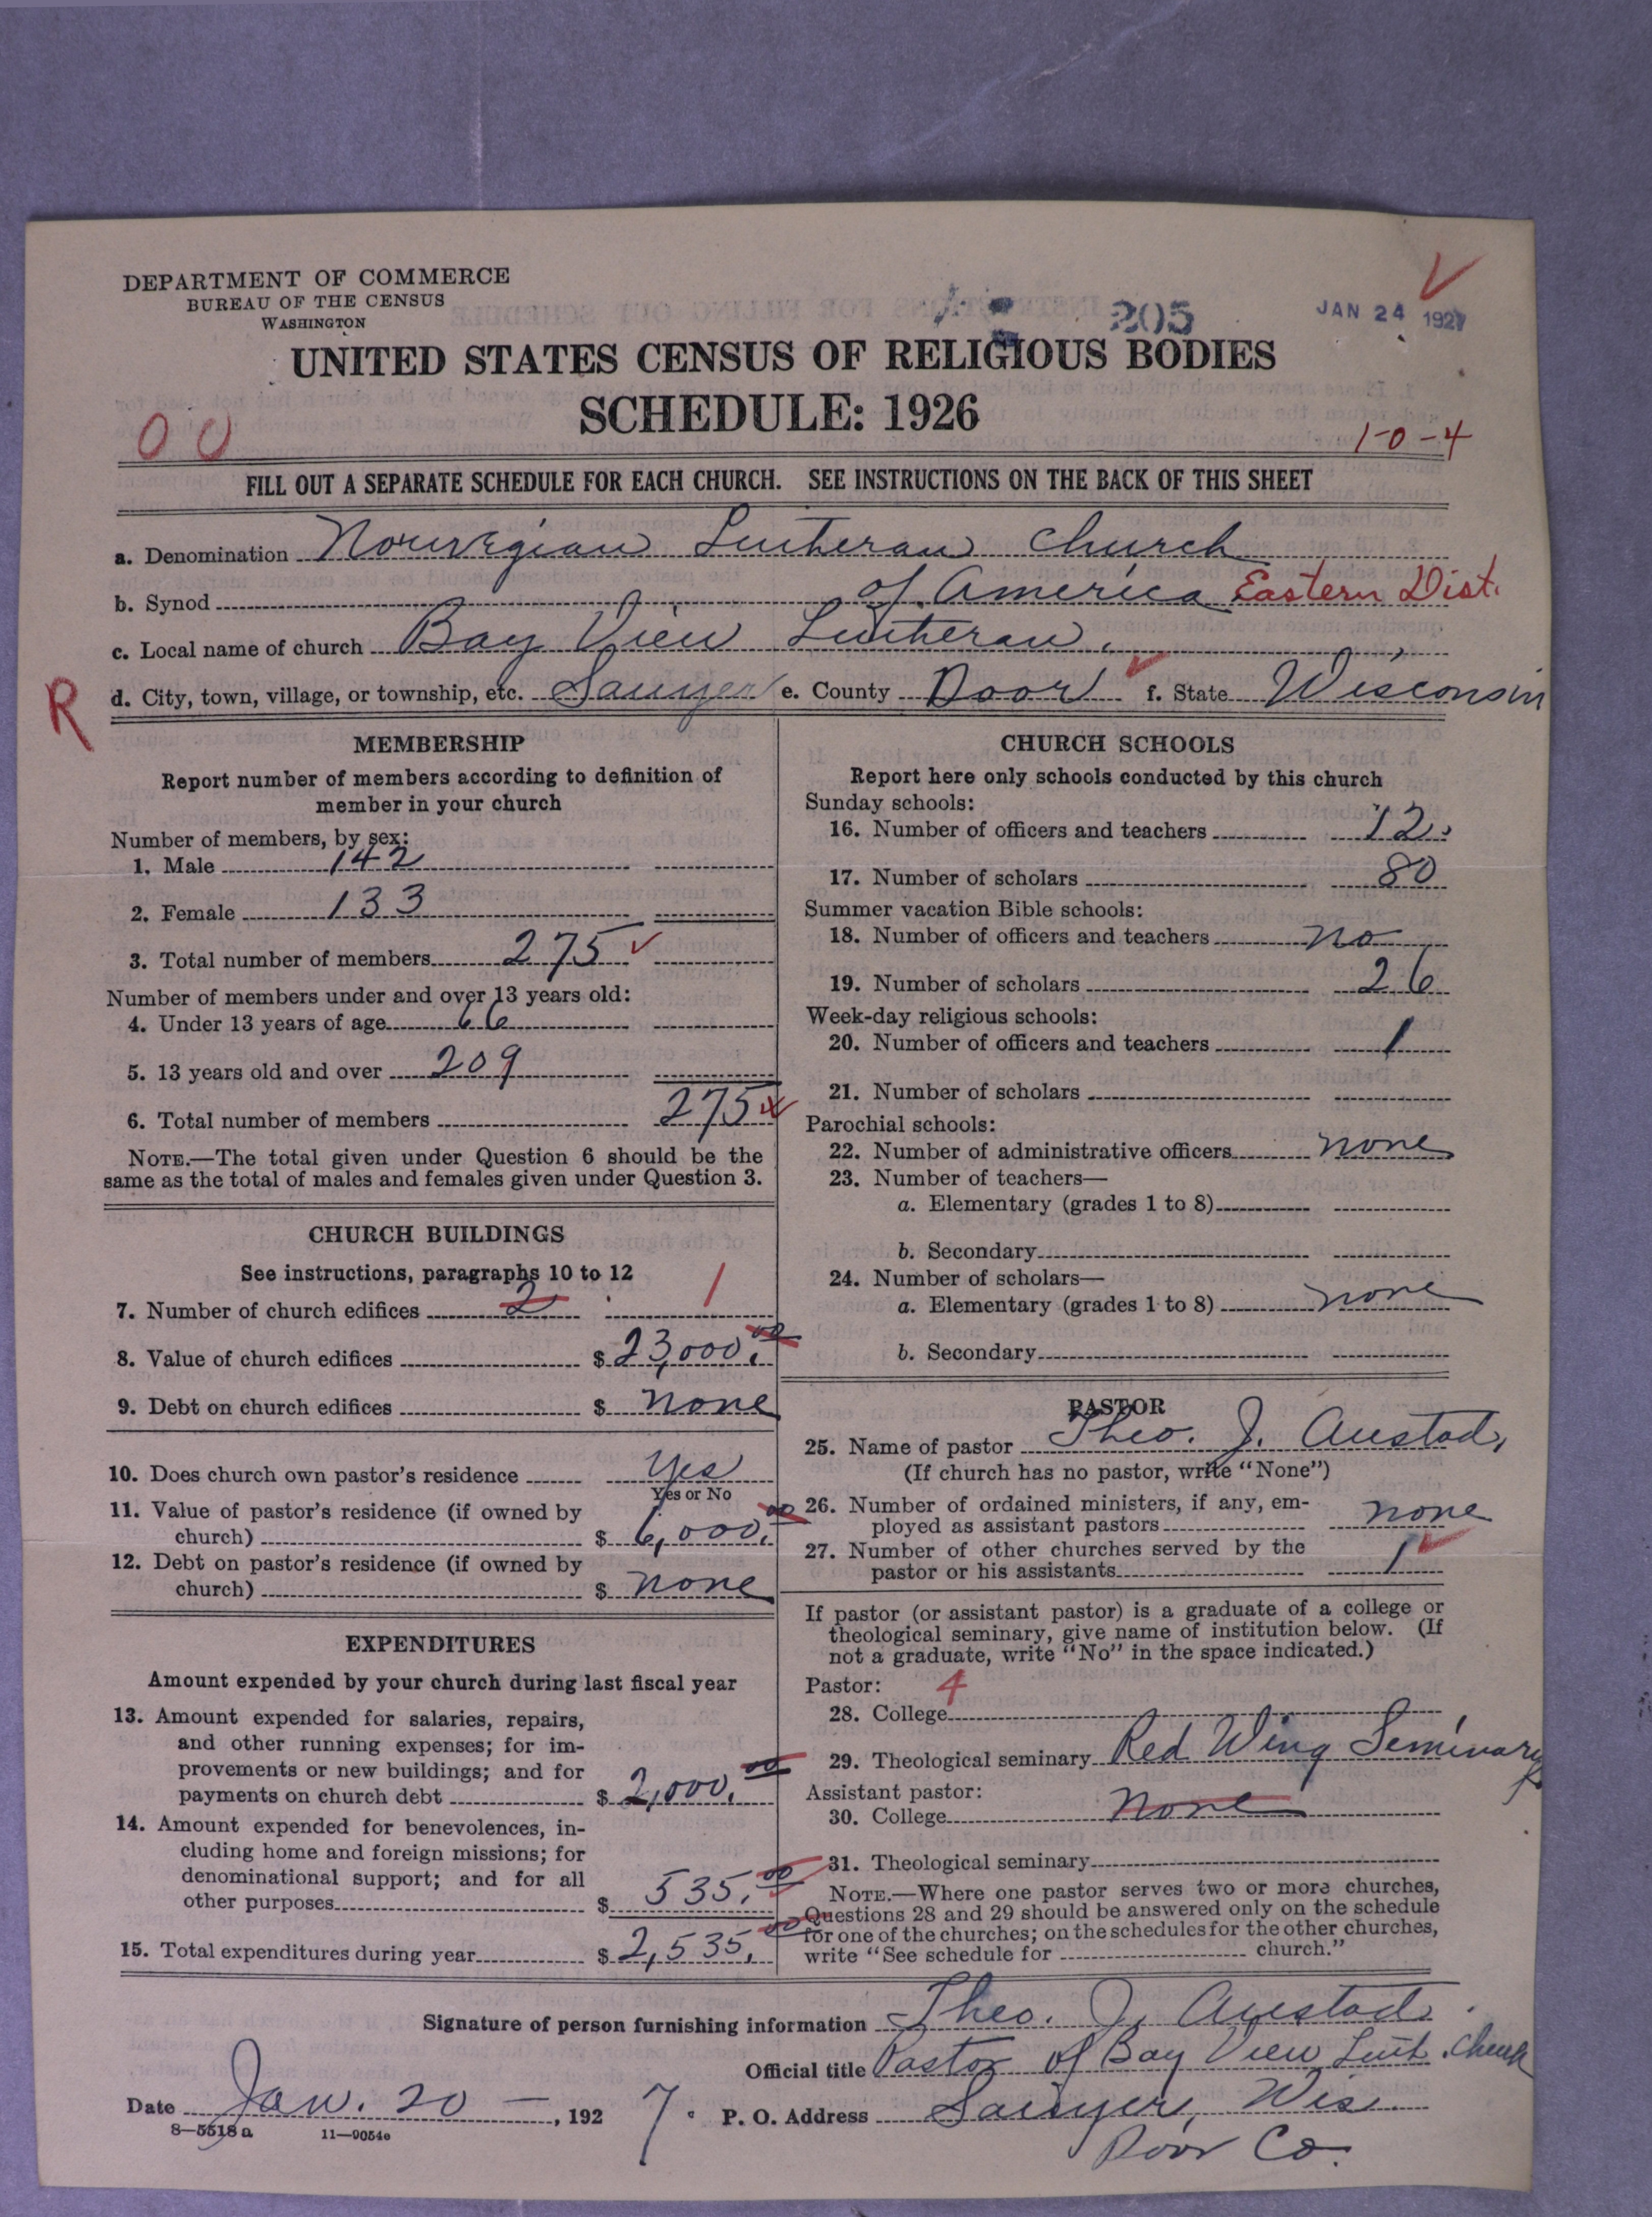 DEPARTMENT OF COMMERCE
BUREAU OF THE CENSUS
WASHINGTON
205
JAN 24 1927
UNITED STATES CENSUS OF RELIGIOUS BODIES
SCHEDULE: 1926
00
1-0-4
FILL OUT A SEPARATE SCHEDULE FOR EACH CHURCH. SEE INSTRUCTIONS ON THE BACK OF THIS SHEET
a. Denomination Norwegian Lutheran Church
b. Synod of America Eastern Dist.
c. Local name of church Bay View Lutheran,
R
d. City, town, village, or township, etc. Sawyer e. County Door f. State Wisconsin
MEMBERSHIP
Report number of members according to definition of
member in your church
Number of members, by sex:
1. Male 142
2. Female 133
3. Total number of members 275
Number of members under and over 13 years old:
4. Under 13 years of age 66
5. 13 years old and over 209
6. Total number of members 275
NOTE.—The total given under Question 6 should be the
same as the total of males and females given under Question 3.
CHURCH BUILDINGS
See instructions, paragraphs 10 to 12
7. Number of church edifices 2 1
8. Value of church edifices $ 23,000.00
9. Debt on church edifices $ none
10. Does church own pastor's residence Yes
Yes or No
11. Value of pastor's residence (if owned by
church) $ 6,000.00
12. Debt on pastor's residence (if owned by
church) $ none
EXPENDITURES
Amount expended by your church during last fiscal year
13. Amount expended for salaries, repairs,
and other running expenses; for im-
provements or new buildings; and for
payments on church debt $ 2,000.00
14. Amount expended for benevolences, in-
cluding home and foreign missions; for
denominational support; and for all
other purposes $ 535.00
15. Total expenditures during year $ 2,535.00
CHURCH SCHOOLS
Report here only schools conducted by this church
Sunday schools:
16. Number of officers and teachers 12
17. Number of scholars 80
Summer vacation Bible schools:
18. Number of officers and teachers no
19. Number of scholars 26
Week-day religious schools:
20. Number of officers and teachers 1
21. Number of scholars
Parochial schools:
22. Number of administrative officers none
23. Number of teachers—
a. Elementary (grades 1 to 8)
b. Secondary
24. Number of scholars—
a. Elementary (grades 1 to 8) none
b. Secondary
PASTOR
25. Name of pastor Theo. J. Austad,
(If church has no pastor, write "None")
26. Number of ordained ministers, if any, em-
ployed as assistant pastors none
27. Number of other churches served by the
pastor or his assistants 1
If pastor (or assistant pastor) is a graduate of a college or
theological seminary, give name of institution below. (If
not a graduate, write "No" in the space indicated.)
Pastor: 4
28. College
29. Theological seminary Red Wing Seminary
Assistant pastor:
30. College none
31. Theological seminary
NOTE.—Where one pastor serves two or more churches,
Questions 28 and 29 should be answered only on the schedule
for one of the churches; on the schedules for the other churches,
write "See schedule for church."
Signature of person furnishing information Theo. J. Austad
Official title Pastor of Bay View Luth. Church
Date Jan. 20 — , 1927. P. O. Address Sawyer, Wis.
8—5518a 11—9054e
Door Co.